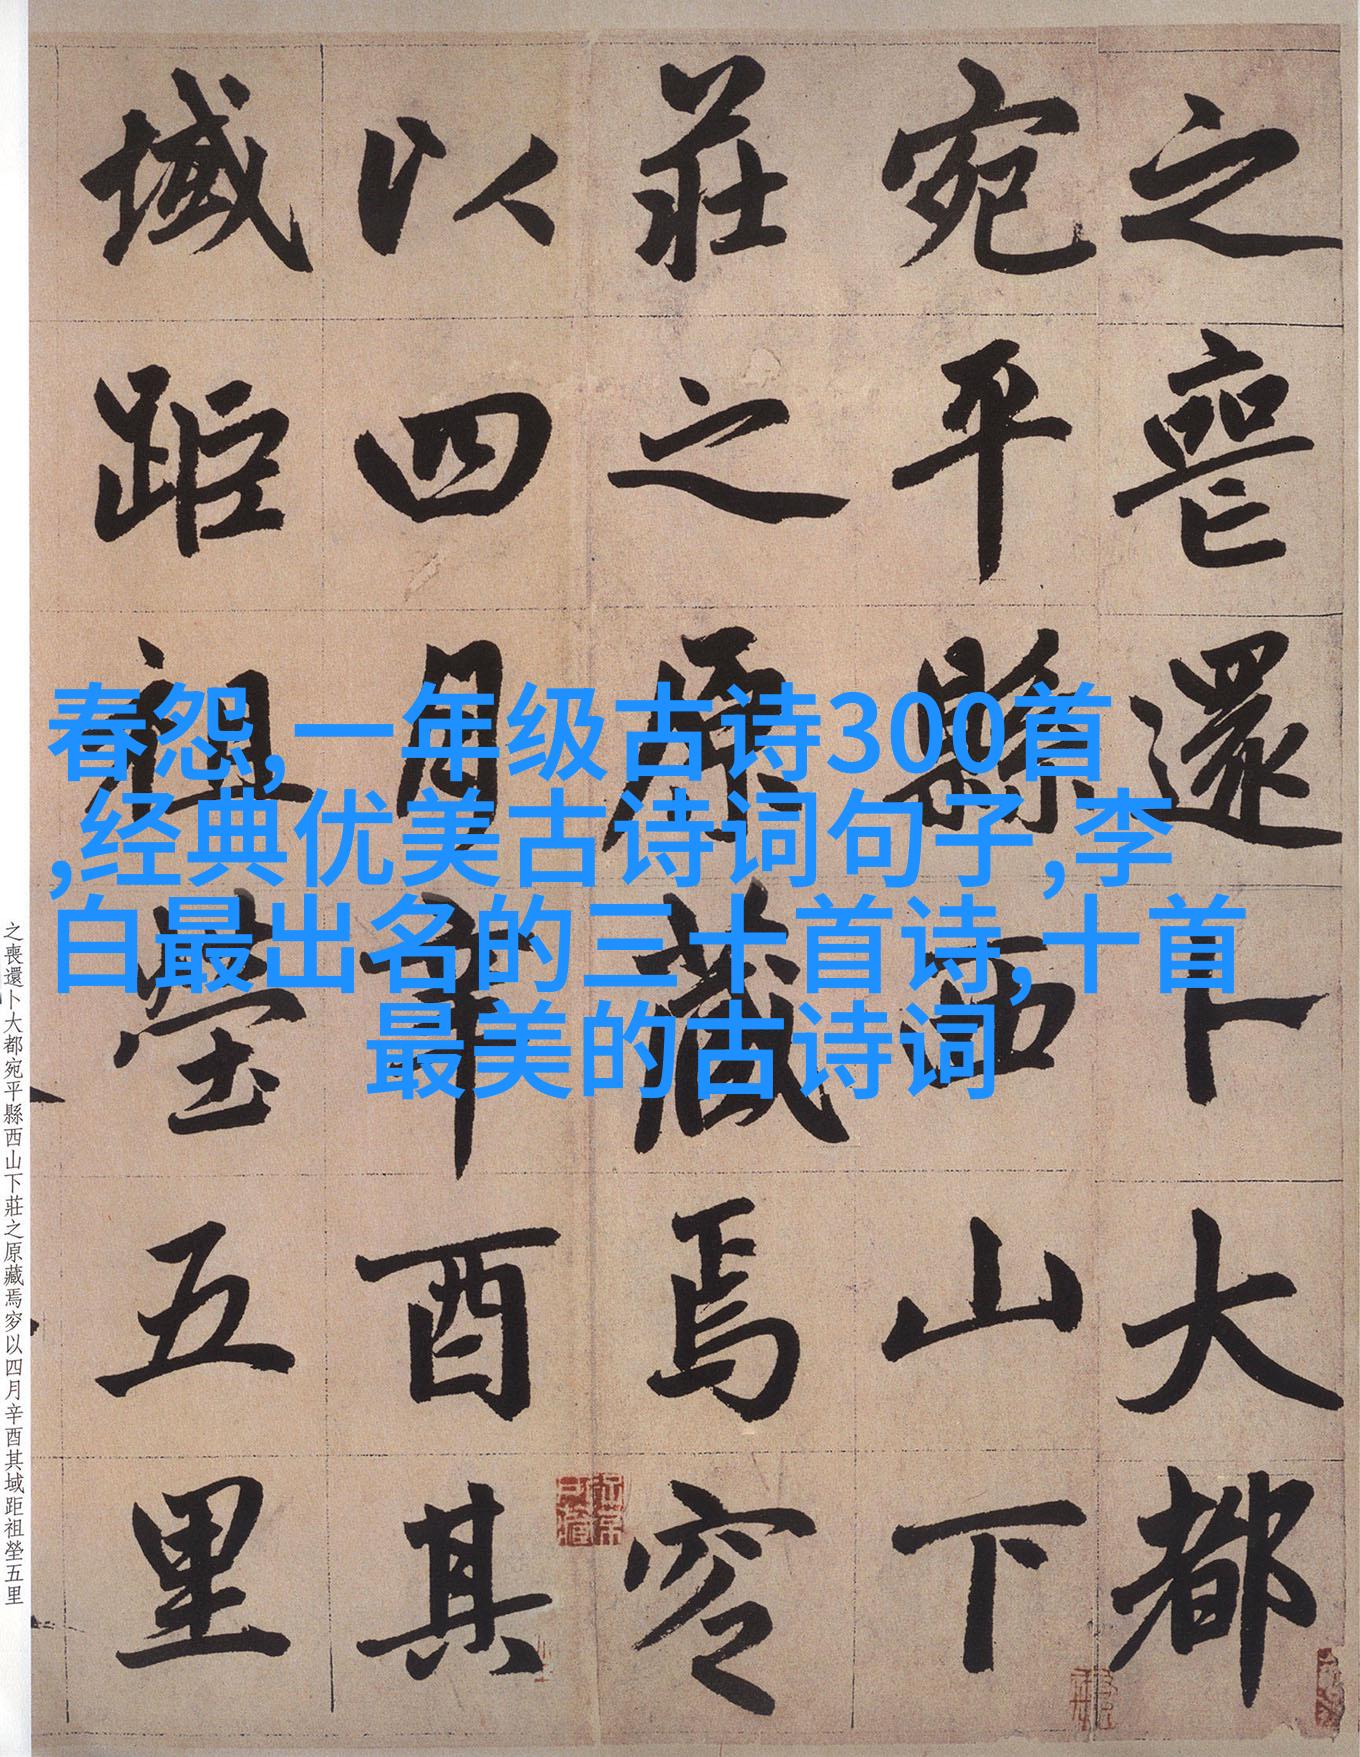 之喪還卜大都
宛平縣西山下
莊之原藏焉穸
以四月辛酉其
域距祖塋五里
春怨,一年级古诗300首
,经典优美古诗词句子,李
白最出名的三十首诗,十首
最美的古诗词
之喪還卜大都宛平縣西山下莊之原藏焉穸以四月辛酉其域距祖塋五里